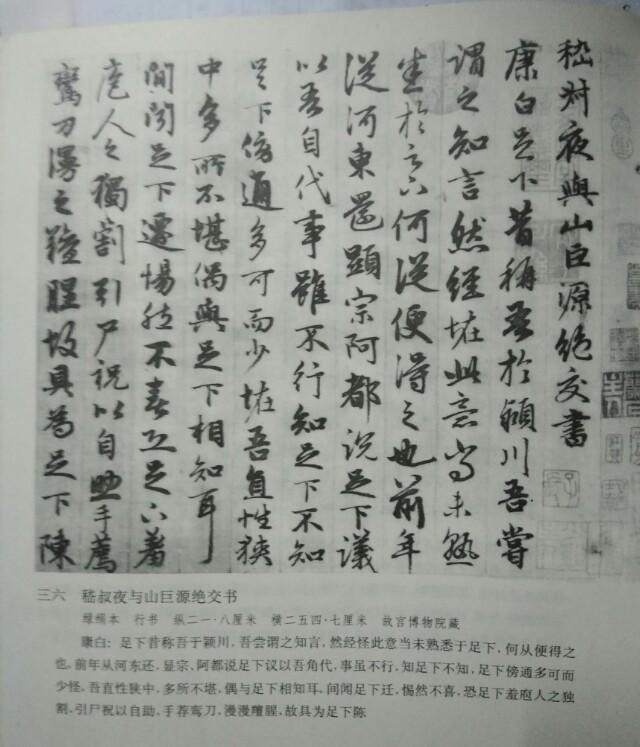 嵇叔夜與山巨源絶交書
康白足下昔稱吾於潁川吾嘗
謂之知言然經怪此意尚未熟
悉於足下何從便得之也前年
從河東還顯宗阿都說足下議
以吾自代事雖不行知足下不知
足下傍通多可而少怪吾直性狹
中多所不堪偶與足下相知耳
間聞足下遷惕然不喜恐足下羞
庖人之獨割引尸祝以自助手薦
鸞刀漫之羶腥故具為足下陳
三六 嵇叔夜与山巨源绝交书
绿绢本 行书 纵二一·八厘米 横二五四·七厘米 故宫博物院藏
康白：足下昔称吾于颖川，吾尝谓之知言，然经怪此意当未熟悉于足下，何从便得之
也，前年从河东还，显宗，阿都说足下议以吾角代，事虽不行，知足下不知，足下傍通多可而
少怪，吾直性狭中，多所不堪，偶与足下相知耳，间闻足下迁，惕然不喜，恐足下羞庖人之独
割，引尸祝以自助，手荐鸾刀，漫漫膻腥，故具为足下陈